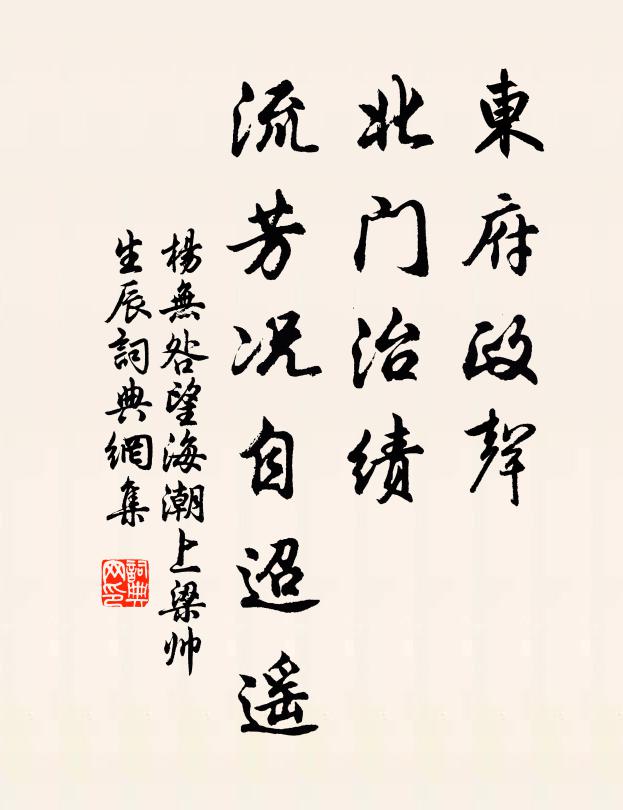 東府政聲
北门治績
流芳况自迢遥
楊無咎望海潮上梁帅
生辰詞典網集
詞典网印